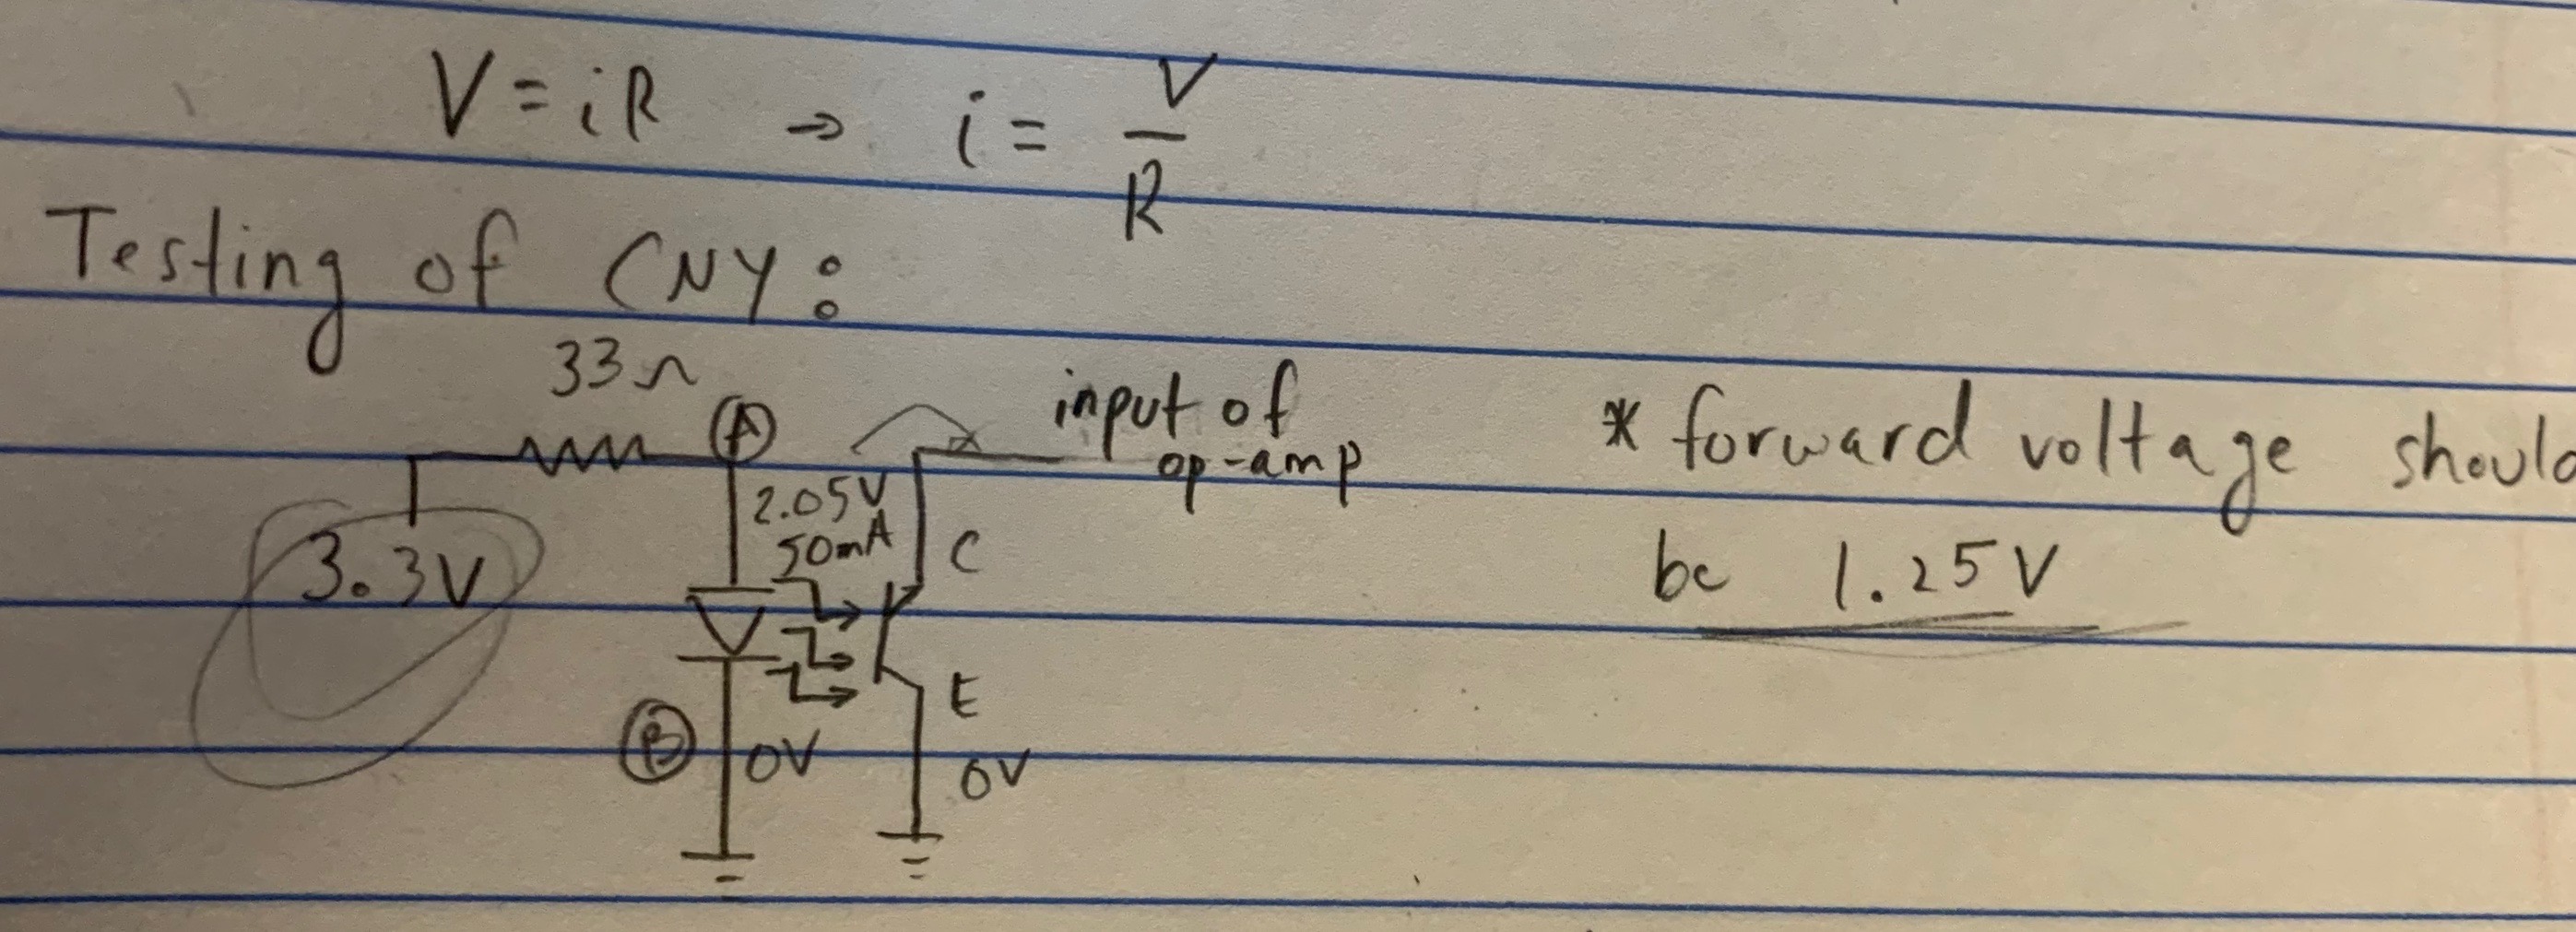 V = iR → i = V/R
Testing of CNY:
33Ω
A
input of
op-amp
* forward voltage should
be 1.25V
2.05V
50mA
C
3.3V
E
B
0V
0V